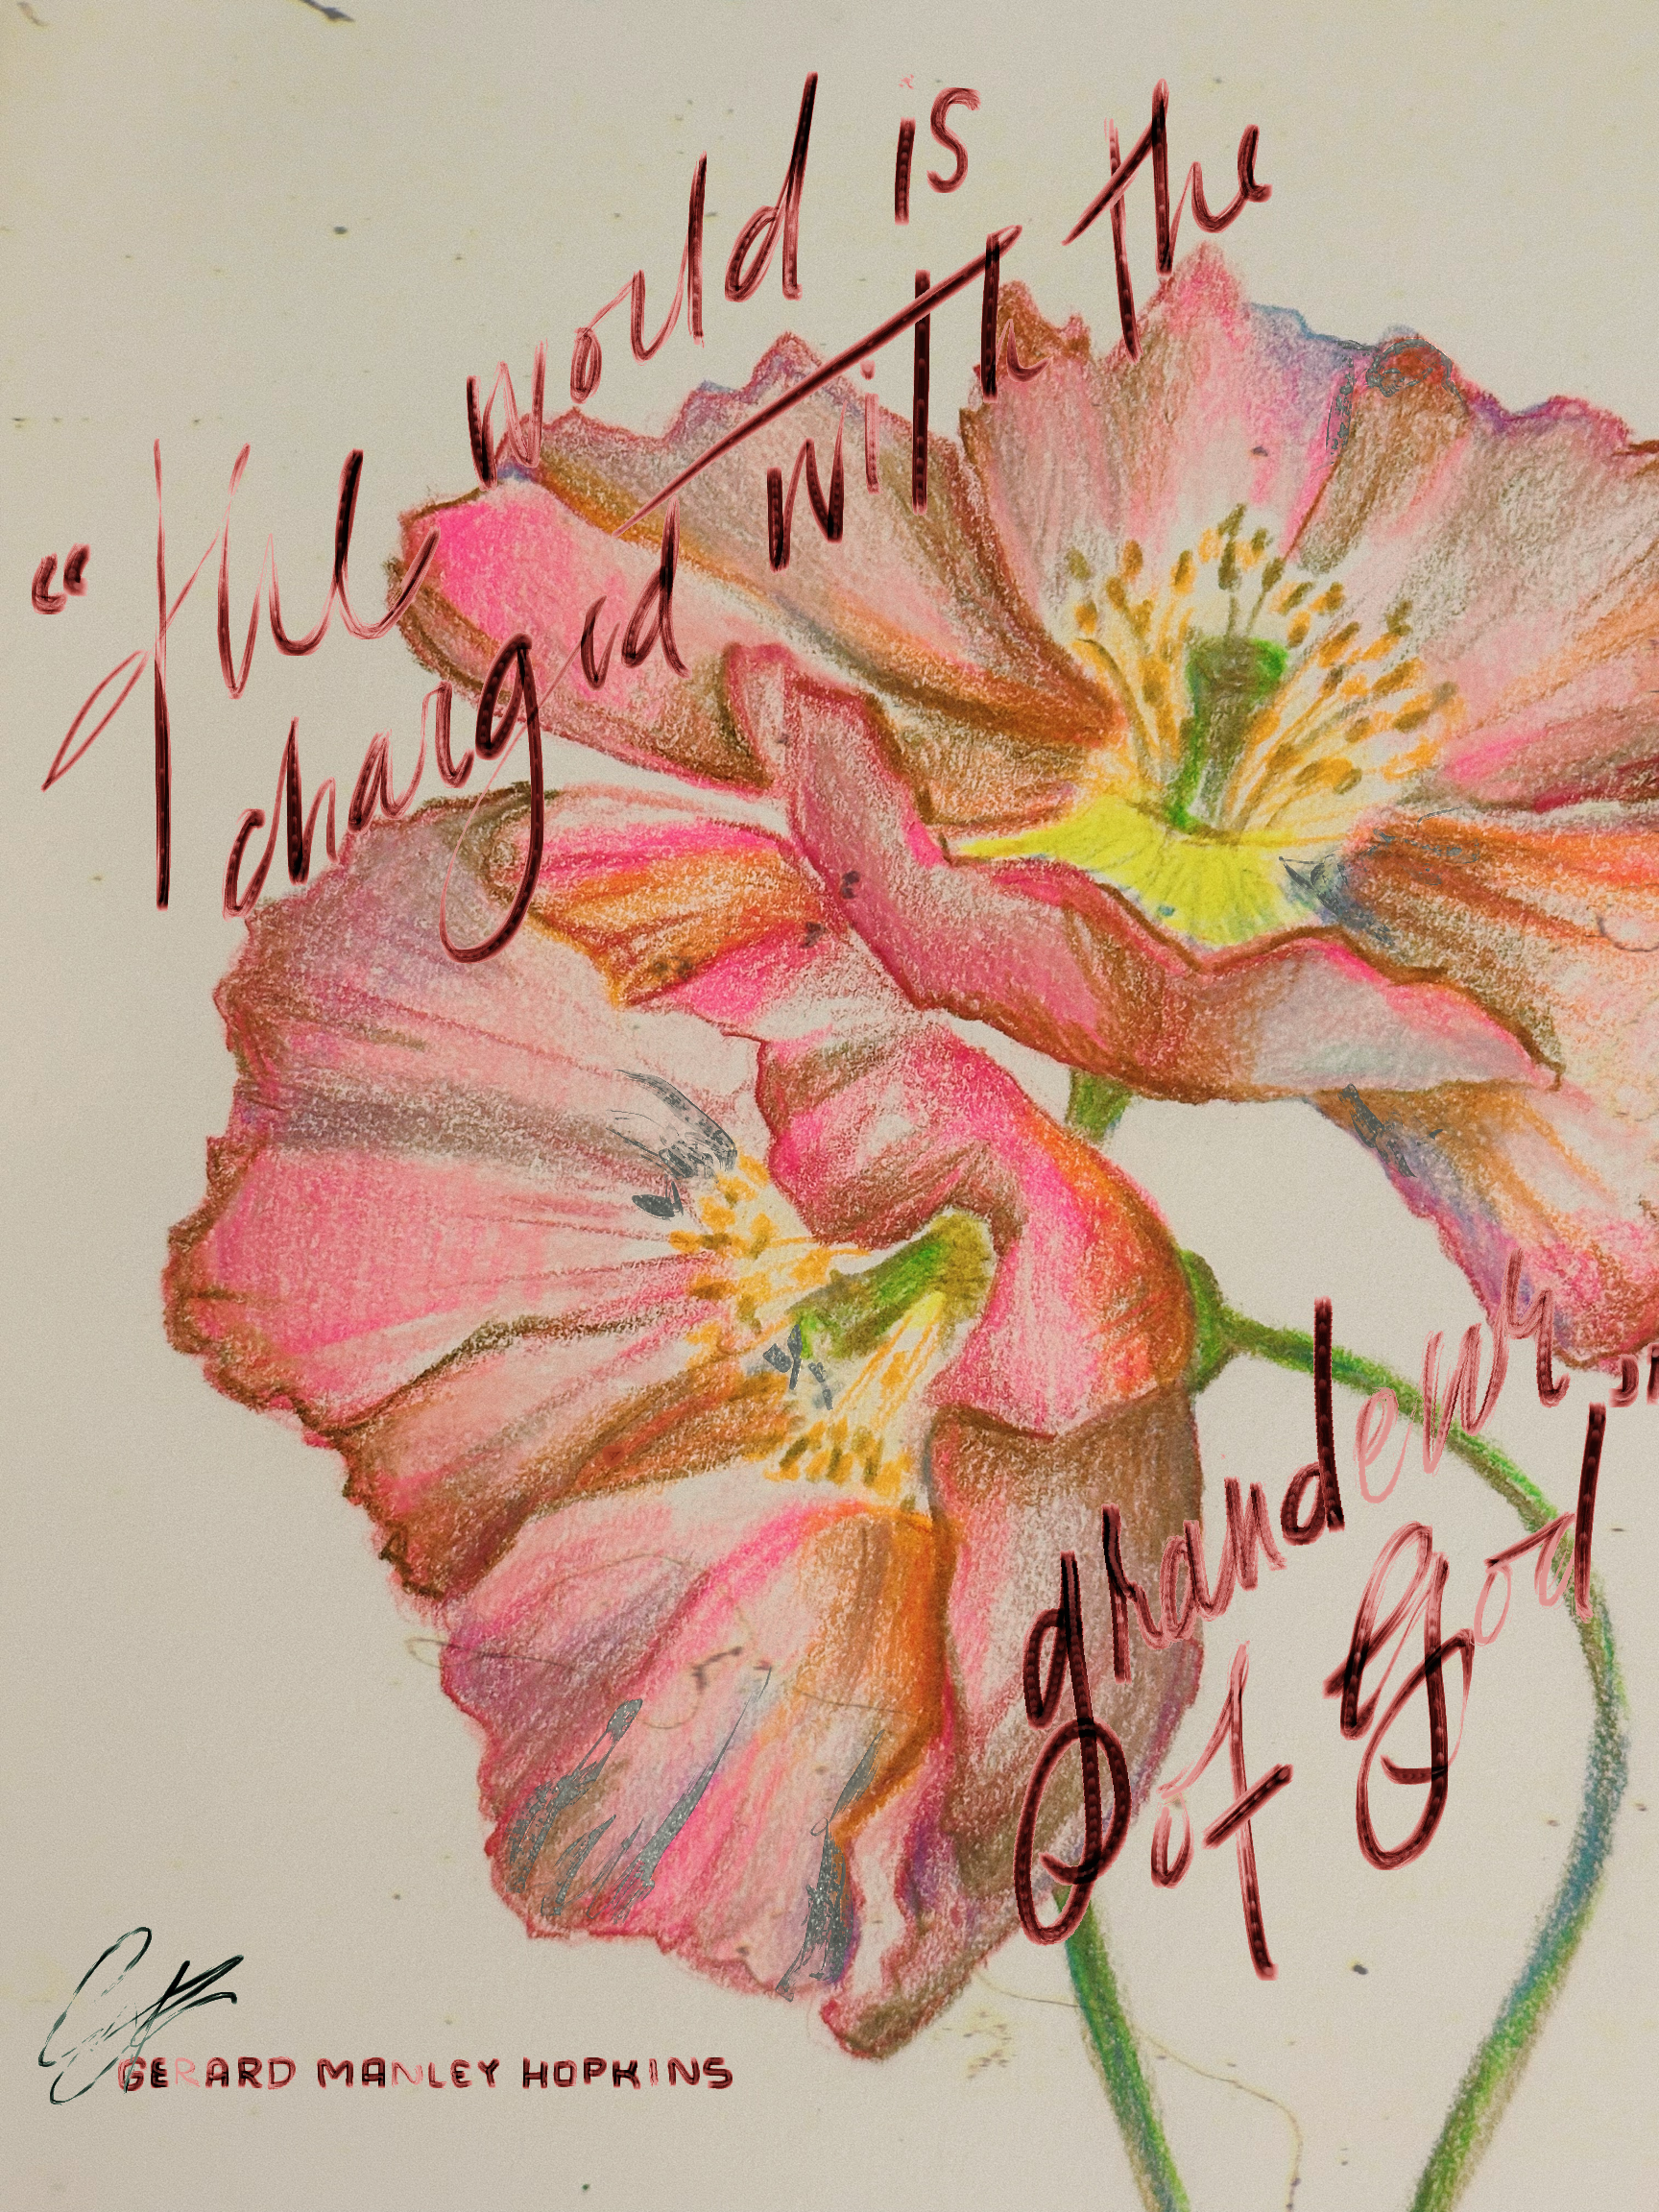 “the world is
charged with the
grandeur
of God”
GERARD MANLEY HOPKINS